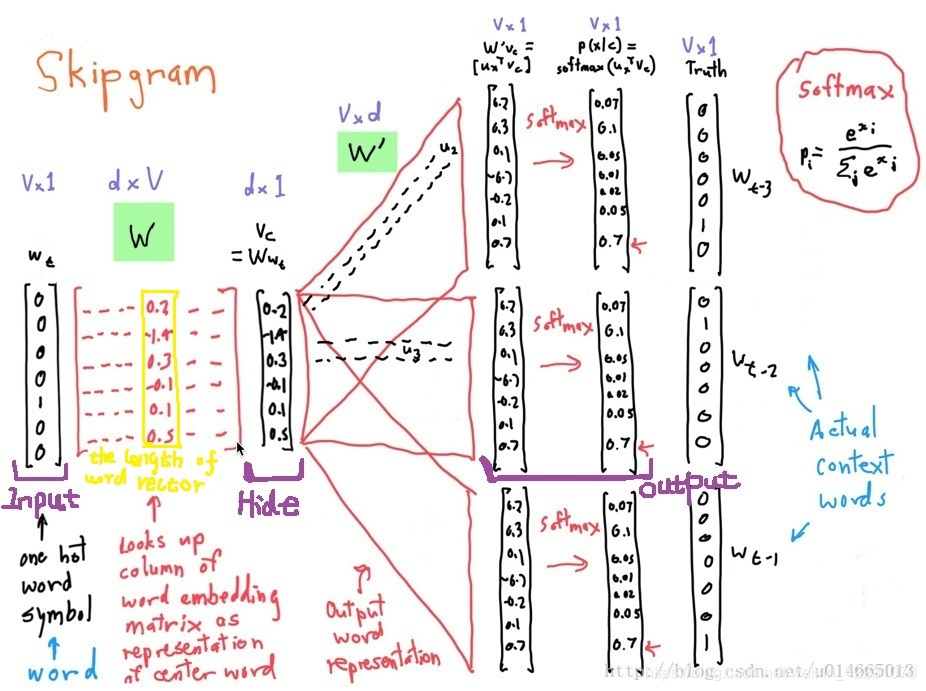 Skipgram
V×1
d×V
W
d×1
V×d
W'
V×1
W'vc =
[ux^T vc]
V×1
p(x|c) =
softmax(ux^T vc)
V×1
Truth
softmax
pi = e^xi / Σj e^xj
wt
0
0
0
0
1
0
0
Input
one hot
word
symbol
word
0.2
-1.4
0.3
-0.1
0.1
0.5
the length of
word vector
Looks up
column of
word embedding
matrix as
representation
of center word
Vc
= Wwt
0.2
-1.4
0.3
-0.1
0.1
0.5
Hide
u2
u3
Output
word
representation
0.2
0.3
0.1
-0.7
-0.2
0.1
0.7
softmax
0.07
0.1
0.05
0.01
0.02
0.05
0.7
0
0
0
0
0
1
0
Wt-3
0.2
0.3
0.1
-0.7
-0.2
0.1
0.7
softmax
0.07
0.1
0.05
0.01
0.02
0.05
0.7
0
1
0
0
0
0
0
Wt-2
Output
Actual
context
words
0.2
0.3
0.1
-0.7
-0.2
0.1
0.7
softmax
0.07
0.1
0.05
0.01
0.02
0.05
0.7
0
0
0
0
0
0
1
Wt-1
http://blog.csdn.net/u014665013